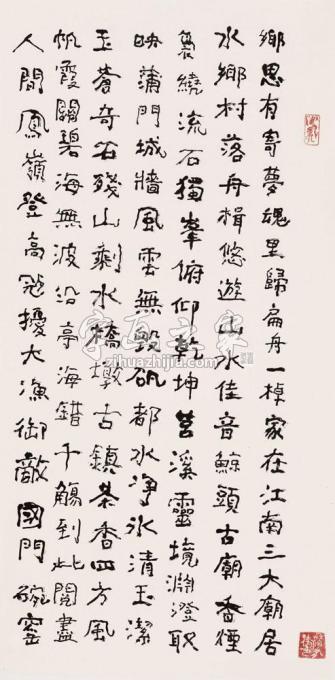 鄉思有寄夢魂里歸扁舟一棹家在江南三大廟居
水鄉村落舟楫悠遊山水佳音鯨頭古廟香煙
裊繞流石獨峯俯仰乾坤莒溪靈境淵澄取
映蒲門城牆風雲無毀矾都水净冰清玉潔
玉蒼奇石殘山剩水橋墩古鎮茶香四方風
帆霞關碧海無波沿亭海錯千觴到此閱盡
人間鳳嶺登高冠擾大漁御敵國門碗窑
字画之家
zihuazhijia.com